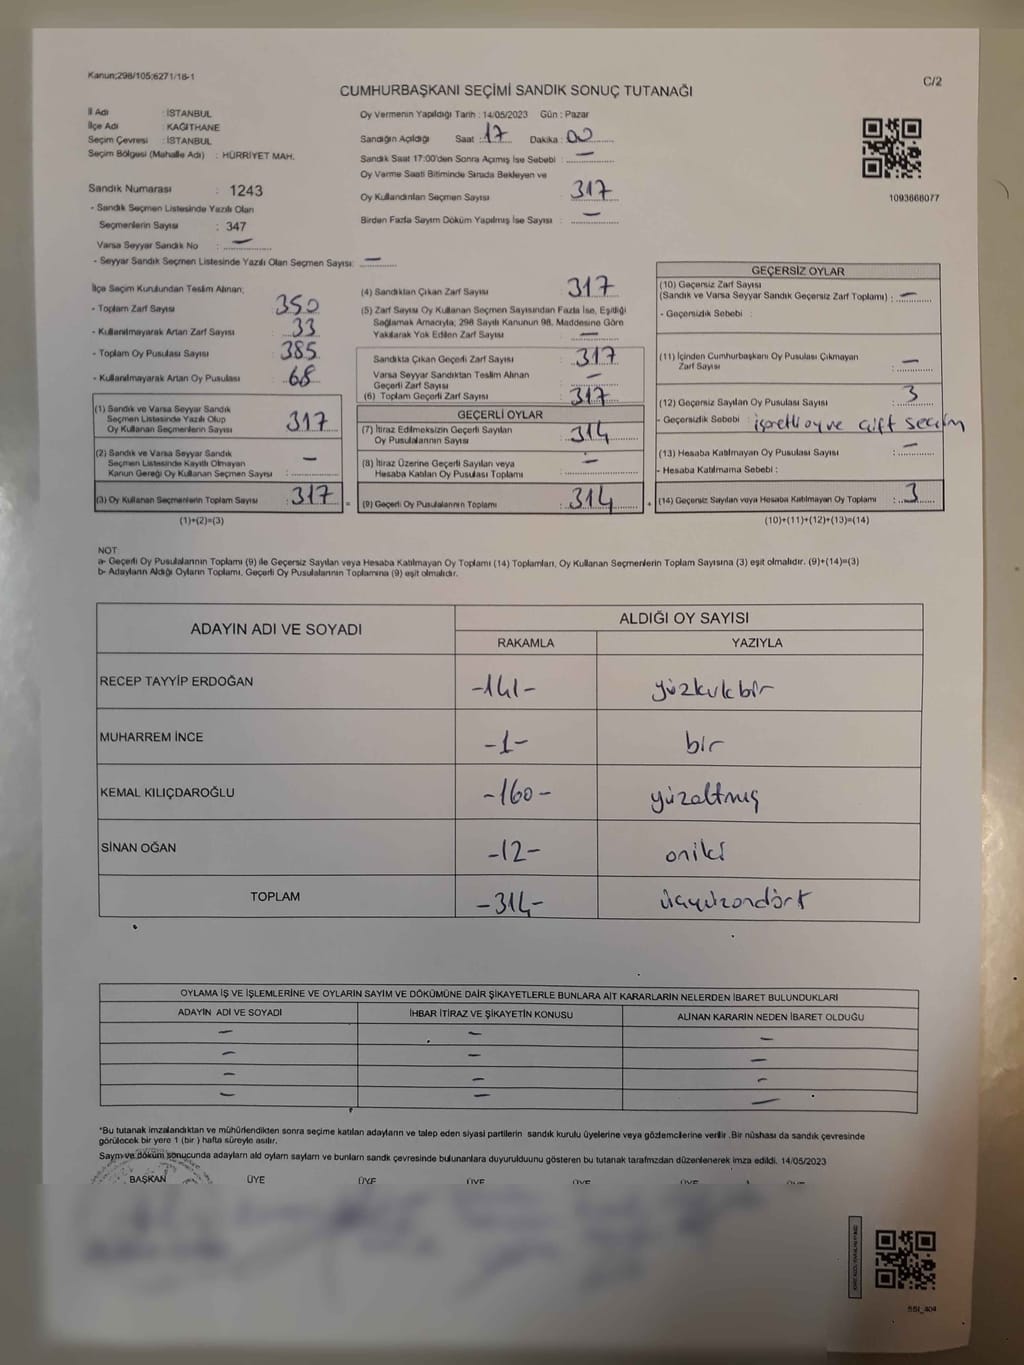 Kanun;298/105;6271/18-1
C/2
CUMHURBAŞKANI SEÇİMİ SANDIK SONUÇ TUTANAĞI
İl Adı : İSTANBUL
İlçe Adı : KAĞITHANE
Seçim Çevresi : İSTANBUL
Seçim Bölgesi (Mahalle Adı) : HÜRRİYET MAH.
Sandık Numarası : 1243
- Sandık Seçmen Listesinde Yazılı Olan
Seçmenlerin Sayısı : 347
Varsa Seyyar Sandık No : —
- Seyyar Sandık Seçmen Listesinde Yazılı Olan Seçmen Sayısı: —
Oy Vermenin Yapıldığı Tarih : 14/05/2023 Gün : Pazar
Sandığın Açıldığı Saat : 17 Dakika : 00
Sandık Saat 17:00'den Sonra Açımış İse Sebebi : —
Oy Verme Saati Bitiminde Sırada Bekleyen ve
Oy Kullandırılan Seçmen Sayısı : 317
Birden Fazla Sayım Döküm Yapılmış İse Sayısı : —
1093668077
İlçe Seçim Kurulundan Teslim Alınan;
- Toplam Zarf Sayısı : 350
- Kullanılmayarak Artan Zarf Sayısı : 33
- Toplam Oy Pusulası Sayısı : 385
- Kullanılmayarak Artan Oy Pusulası : 68
(1) Sandık ve Varsa Seyyar Sandık
Seçmen Listesinde Yazılı Olup
Oy Kullanan Seçmenlerin Sayısı : 317
(2) Sandık ve Varsa Seyyar Sandık
Seçmen Listesinde Kayıtlı Olmayan
Kanun Gereği Oy Kullanan Seçmen Sayısı : —
(3) Oy Kullanan Seçmenlerin Toplam Sayısı : 317
(1)+(2)=(3)
(4) Sandıktan Çıkan Zarf Sayısı : 317
(5) Zarf Sayısı Oy Kullanan Seçmen Sayısından Fazla İse, Eşitliği
Sağlamak Amacıyla, 298 Sayılı Kanunun 98. Maddesine Göre
Yakılarak Yok Edilen Zarf Sayısı : —
Sandıkta Çıkan Geçerli Zarf Sayısı : 317
Varsa Seyyar Sandıktan Teslim Alınan
Geçerli Zarf Sayısı : —
(6) Toplam Geçerli Zarf Sayısı : 317
GEÇERLİ OYLAR
(7) İtiraz Edilmeksizin Geçerli Sayılan
Oy Pusulalarının Sayısı : 314
(8) İtiraz Üzerine Geçerli Sayılan veya
Hesaba Katılan Oy Pusulası Toplamı : —
(9) Geçerli Oy Pusulalarının Toplamı : 314
GEÇERSİZ OYLAR
(10) Geçersiz Zarf Sayısı
(Sandık ve Varsa Seyyar Sandık Geçersiz Zarf Toplamı) : —
- Geçersizlik Sebebi :
(11) İçinden Cumhurbaşkanı Oy Pusulası Çıkmayan
Zarf Sayısı : —
(12) Geçersiz Sayılan Oy Pusulası Sayısı : 3
- Geçersizlik Sebebi : işaretli oy ve çift seçim
(13) Hesaba Katılmayan Oy Pusulası Sayısı : —
- Hesaba Katılmama Sebebi :
(14) Geçersiz Sayılan veya Hesaba Katılmayan Oy Toplamı : 3
(10)+(11)+(12)+(13)=(14)
NOT:
a- Geçerli Oy Pusulalarının Toplamı (9) ile Geçersiz Sayılan veya Hesaba Katılmayan Oy Toplamı (14) Toplamları, Oy Kullanan Seçmenlerin Toplam Sayısına (3) eşit olmalıdır. (9)+(14)=(3)
b- Adayların Aldığı Oyların Toplamı, Geçerli Oy Pusulalarının Toplamına (9) eşit olmalıdır.
ADAYIN ADI VE SOYADI
ALDIĞI OY SAYISI
RAKAMLA YAZIYLA
RECEP TAYYİP ERDOĞAN -141- yüzkırkbir
MUHARREM İNCE -1- bir
KEMAL KILIÇDAROĞLU -160- yüzaltmış
SİNAN OĞAN -12- oniki
TOPLAM -314- üçyüzondört
OYLAMA İŞ VE İŞLEMLERİNE VE OYLARIN SAYIM VE DÖKÜMÜNE DAİR ŞİKAYETLERLE BUNLARA AİT KARARLARIN NELERDEN İBARET BULUNDUKLARI
ADAYIN ADI VE SOYADI İHBAR İTİRAZ VE ŞİKAYETİN KONUSU ALINAN KARARIN NEDEN İBARET OLDUĞU
— — —
— — —
— — —
— — —
*Bu tutanak imzalandıktan ve mühürlendikten sonra seçime katılan adayların ve talep eden siyasi partilerin sandık kurulu üyelerine veya gözlemcilerine verilir .Bir nüshası da sandık çevresinde
görülecek bir yere 1 (bir ) hafta süreyle asılır.
Sayım ve döküm sonucunda adayların ald oyların sayların ve bunların sandk çevresinde bulunanlara duyurulduunu gösteren bu tutanak tarafmzdan düzenlenerek imza edildi. 14/05/2023
BAŞKAN ÜYE ÜYE ÜYE ÜYE ÜYE ÜYE
SSI_404